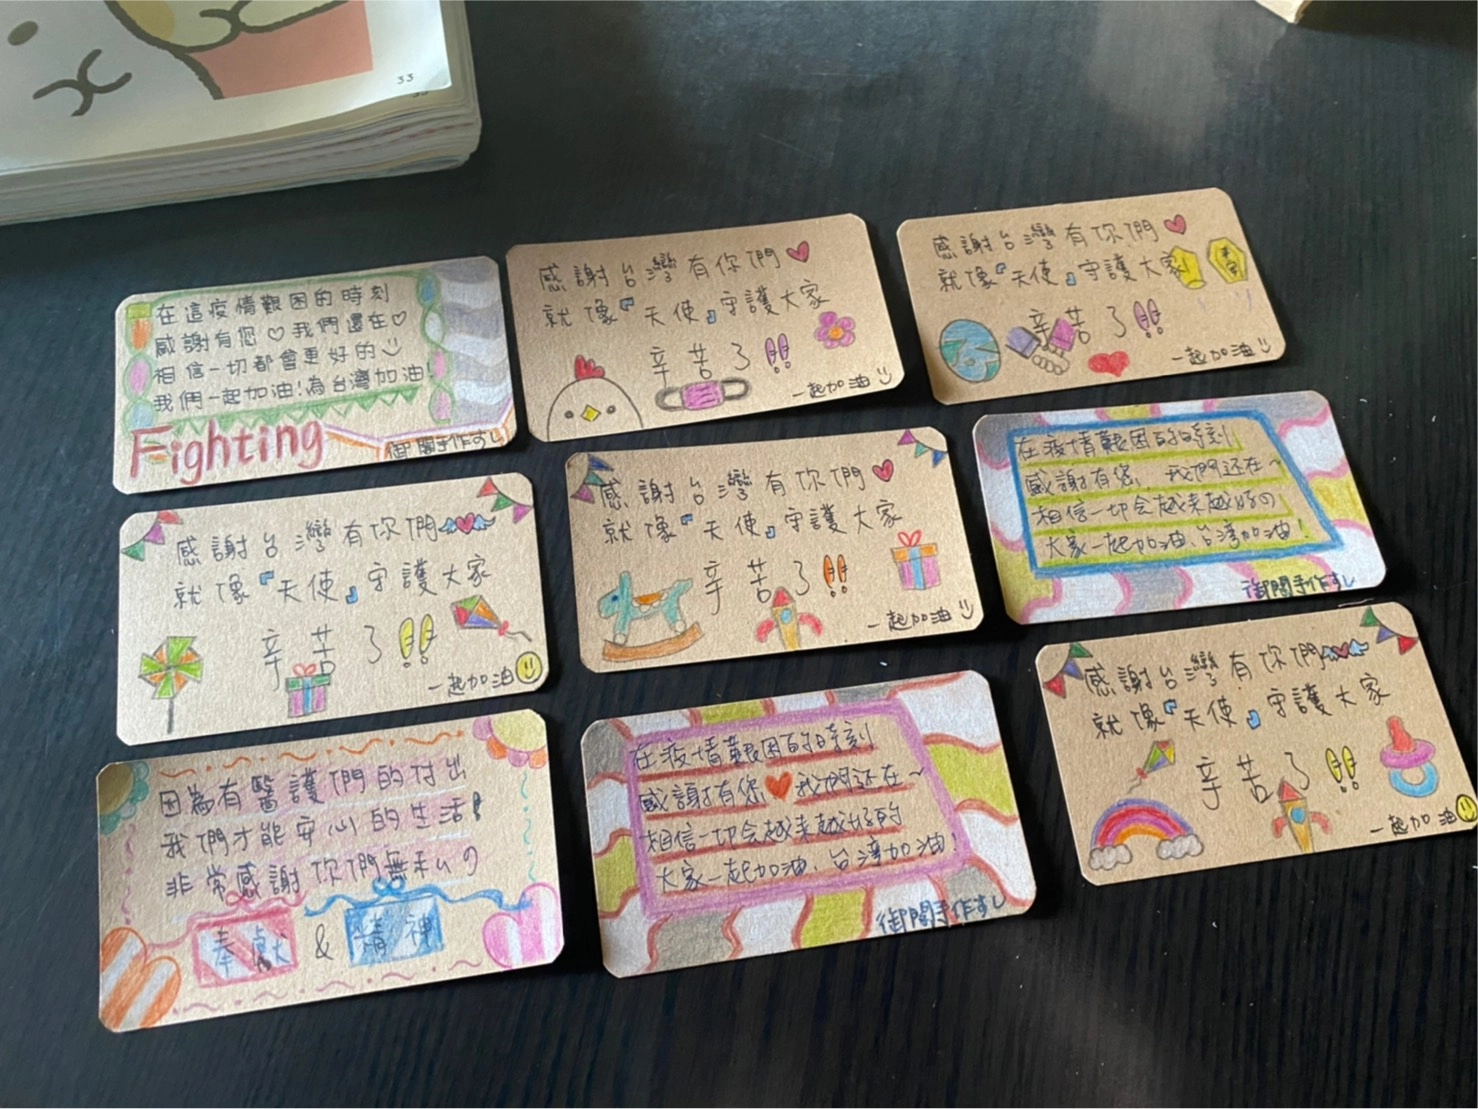 33
在這疫情艱困的時刻
感謝有您♡我們還在♡
相信一切都會更好的
我們一起加油!為台灣加油!
Fighting
御閣手作すし
感謝台灣有你們
就像『天使』守護大家
辛苦了!!
一起加油
感謝台灣有你們
就像『天使』守護大家
辛苦了!!
一起加油
感謝台灣有你們
就像『天使』守護大家
辛苦了!!
一起加油
感謝台灣有你們
就像『天使』守護大家
辛苦了!!
一起加油
在疫情艱困的時刻
感謝有您,我們还在~
相信一切会越来越好の
大家一起加油、台湾加油!
御閣手作すし
因為有醫護們的付出
我們才能安心的生活!
非常感謝你們無私の
奉獻 & 精神
在疫情艱困的時刻
感謝有您 我們还在~
相信一切会越来越好的
大家一起加油、台湾加油!
御閣手作すし
感謝台灣有你們
就像『天使』守護大家
辛苦了!!
一起加油